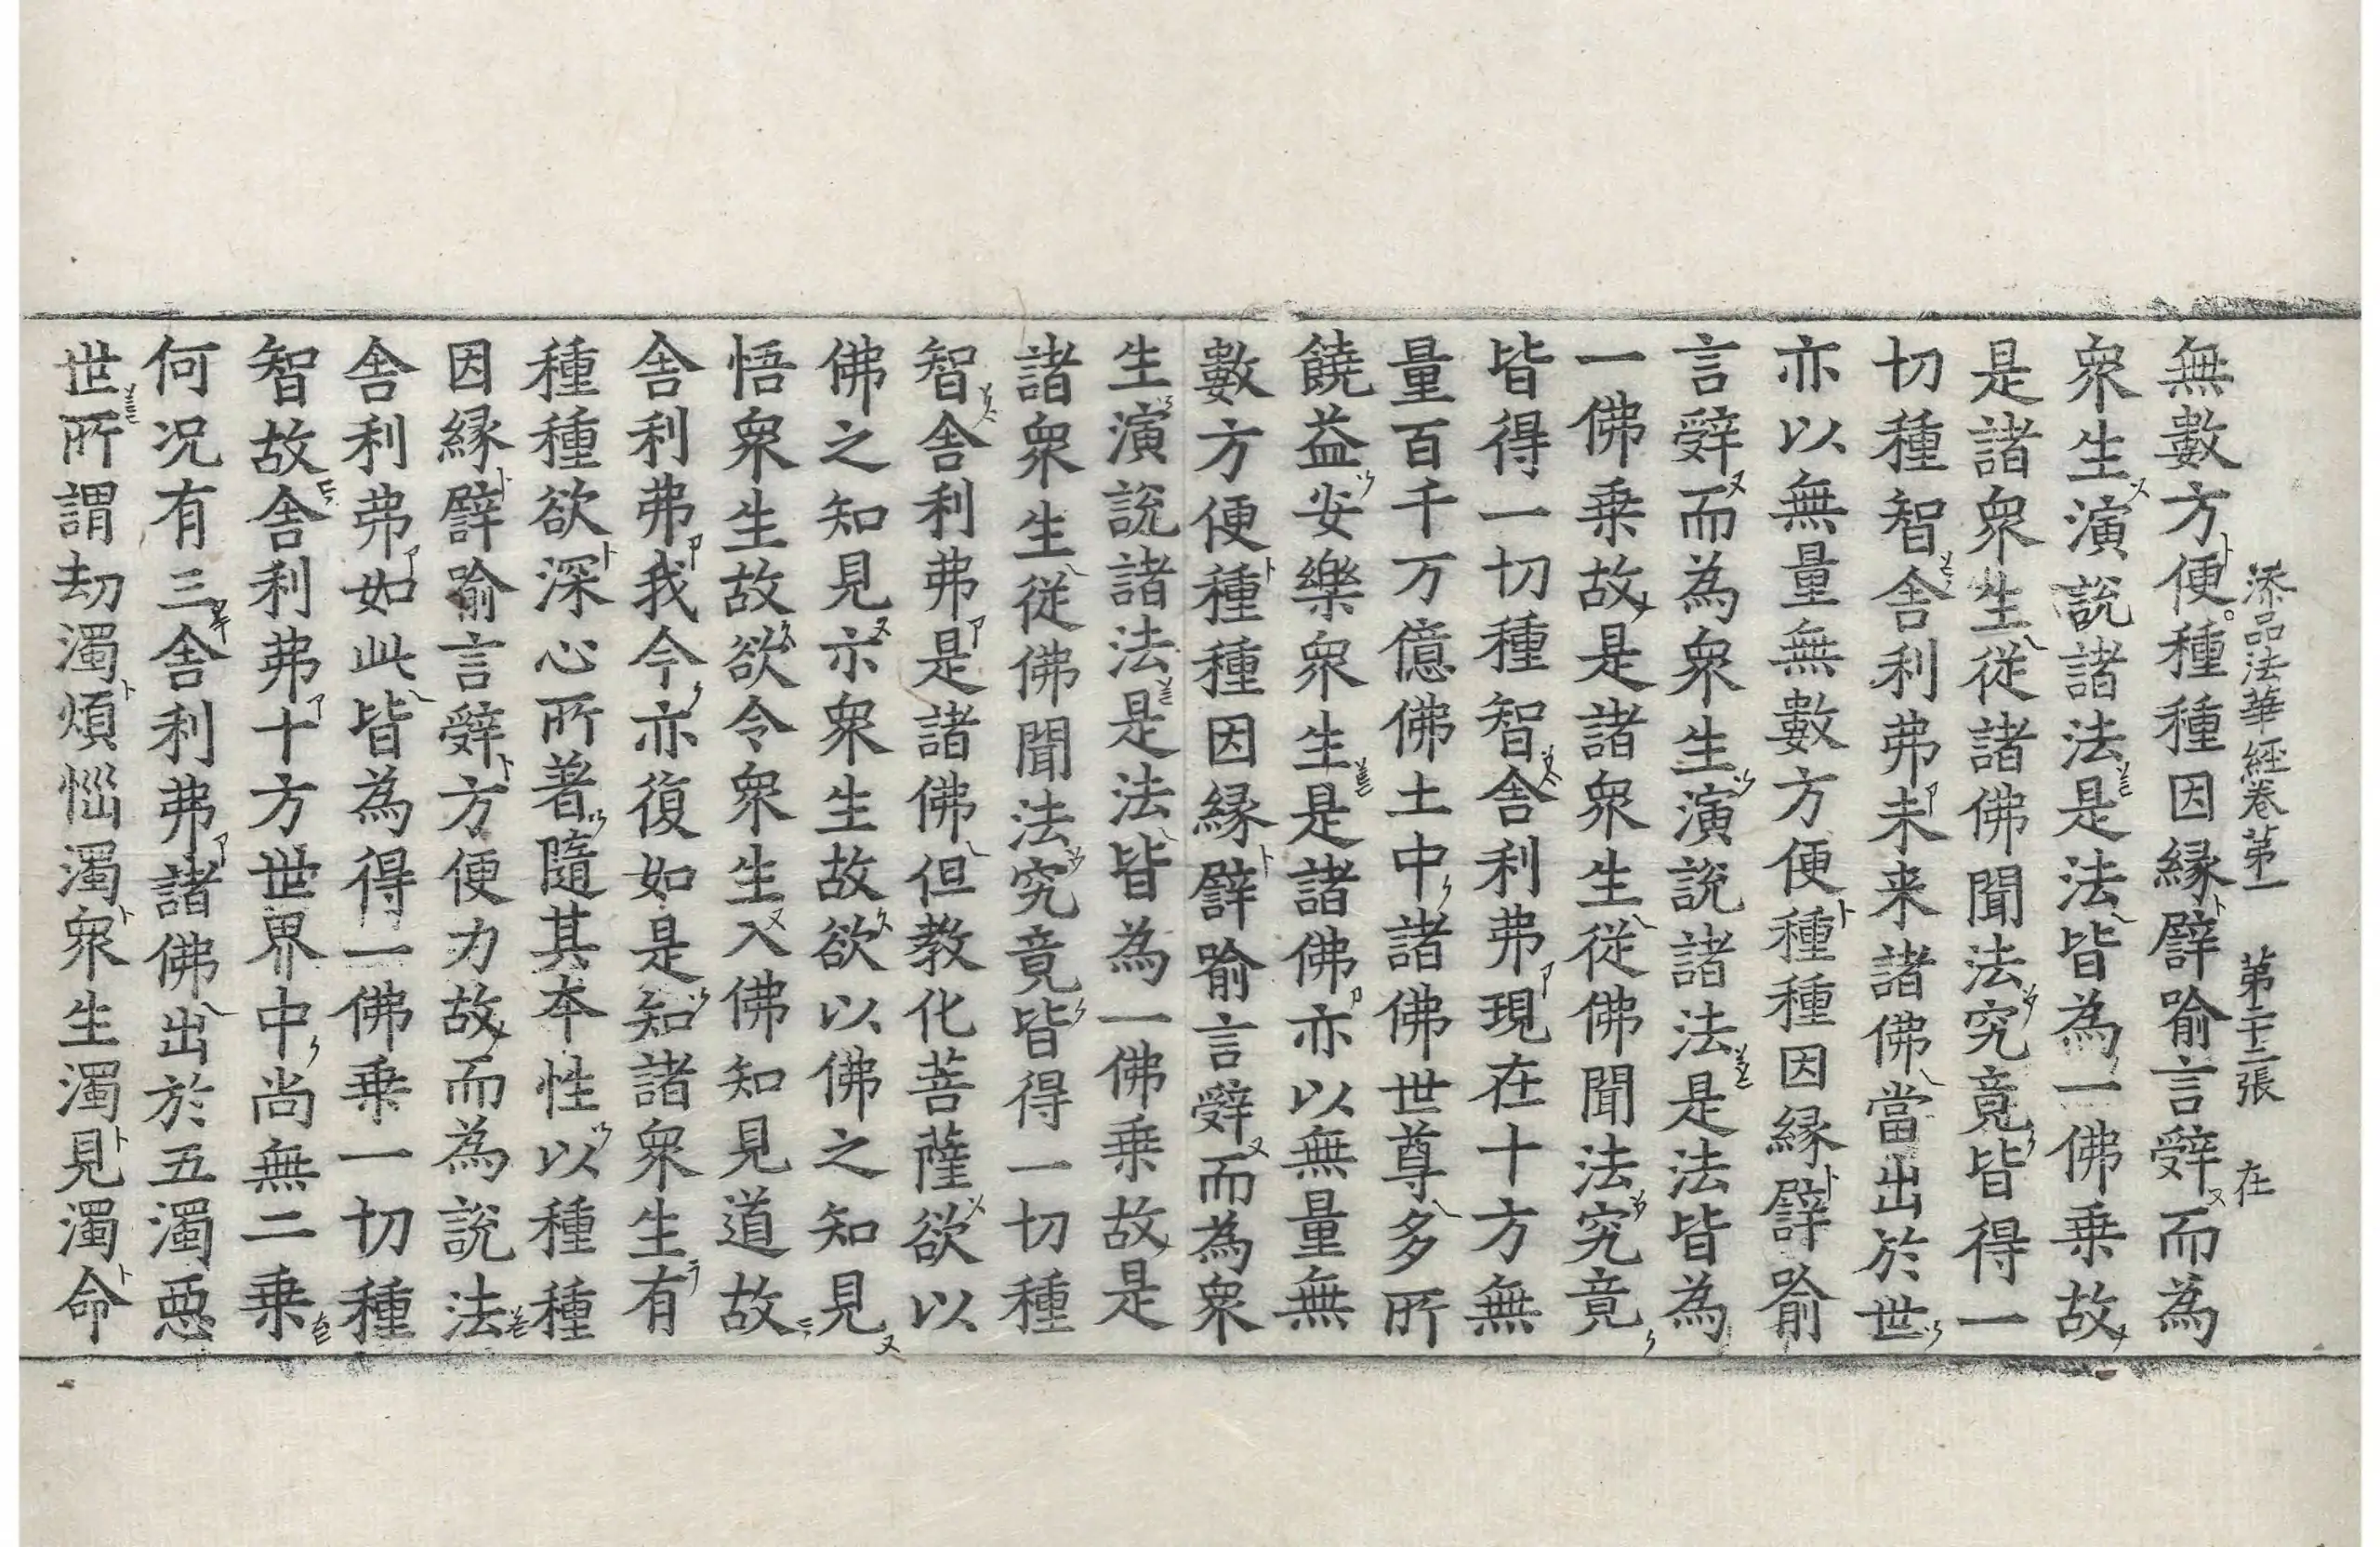 添品法華経卷第一 第二十三張 在
無數方便種種因縁譬喻言辝而為
衆生演說諸法是法皆為一佛乗故
是諸衆生從諸佛聞法究竟皆得一
切種智舎利弗未来諸佛當出於世
亦以無量無數方便種種因縁譬喻
言辝而為衆生演說諸法是法皆為
一佛乗故是諸衆生從佛聞法究竟
皆得一切種智舎利弗現在十方無
量百千万億佛土中諸佛世尊多所
饒益安樂衆生是諸佛亦以無量無
數方便種種因縁譬喻言辝而為衆
生演說諸法是法皆為一佛乗故是
諸衆生從佛聞法究竟皆得一切種
智舎利弗是諸佛但教化菩薩欲以
佛之知見示衆生故欲以佛之知見
悟衆生故欲令衆生入佛知見道故
舎利弗我今亦復如是知諸衆生有
種種欲深心所著隨其本性以種種
因縁譬喻言辝方便力故而為說法
舎利弗如此皆為得一佛乗一切種
智故舎利弗十方世界中尚無二乗
何况有三舎利弗諸佛出於五濁惡
世所謂劫濁煩惱濁衆生濁見濁命